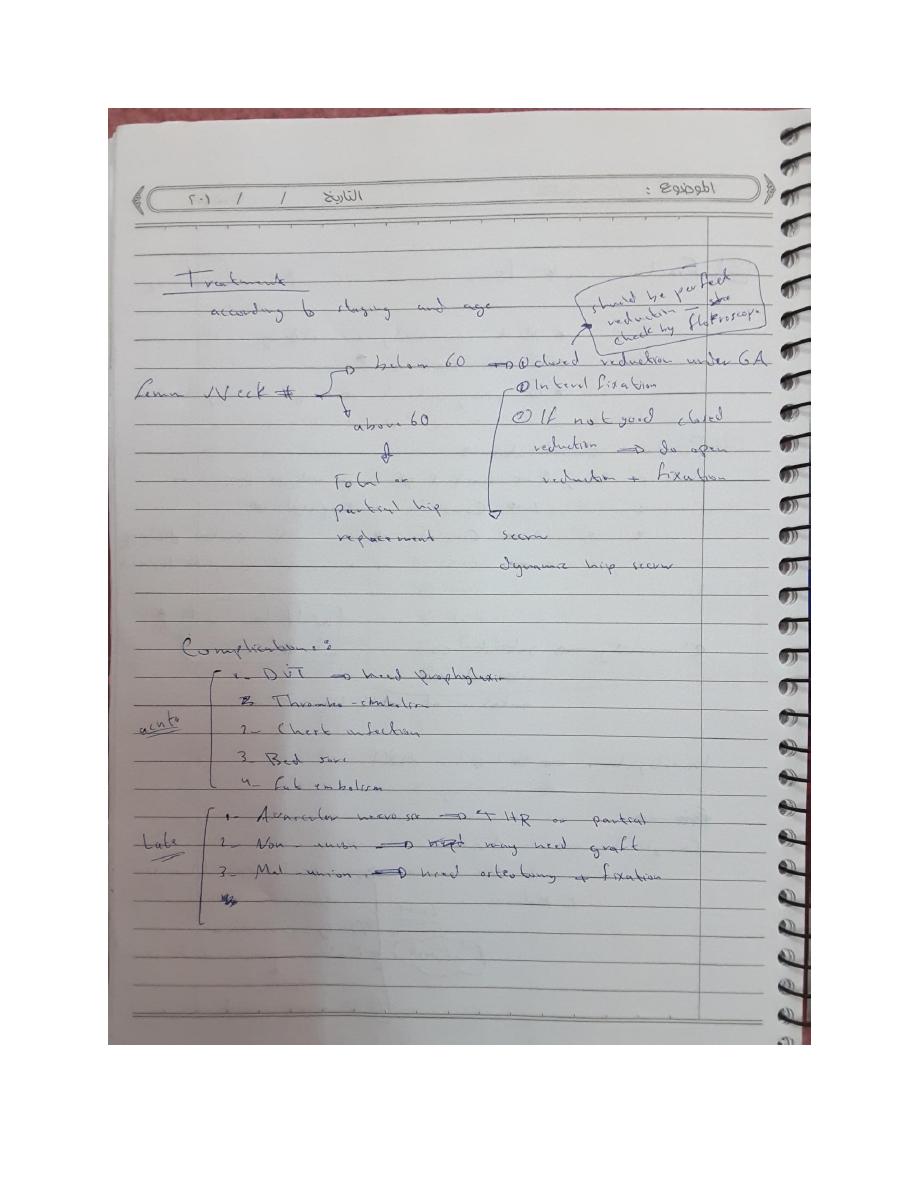 الموضوع : التاريخ / / ٢٠١
Treatment
according to staging and age
should be perfect
reduction
check by
below 60 → ① closed reduction under GA
Femur Neck #
② Internal fixation
above 60
② If not good closed
reduction → do open
reduction + fixation
Total or
partial hip
replacement
screw
dynamic hip screw
Complication :
acute
1- DVT → need prophylaxis
Thrombo-embolism
2- Chest infection
3- Bed sore
4- Fat embolism
Late
1- Avascular necrosis → THR or partial
2- Non-union → may need graft
3- Mal-union → need osteotomy + fixation